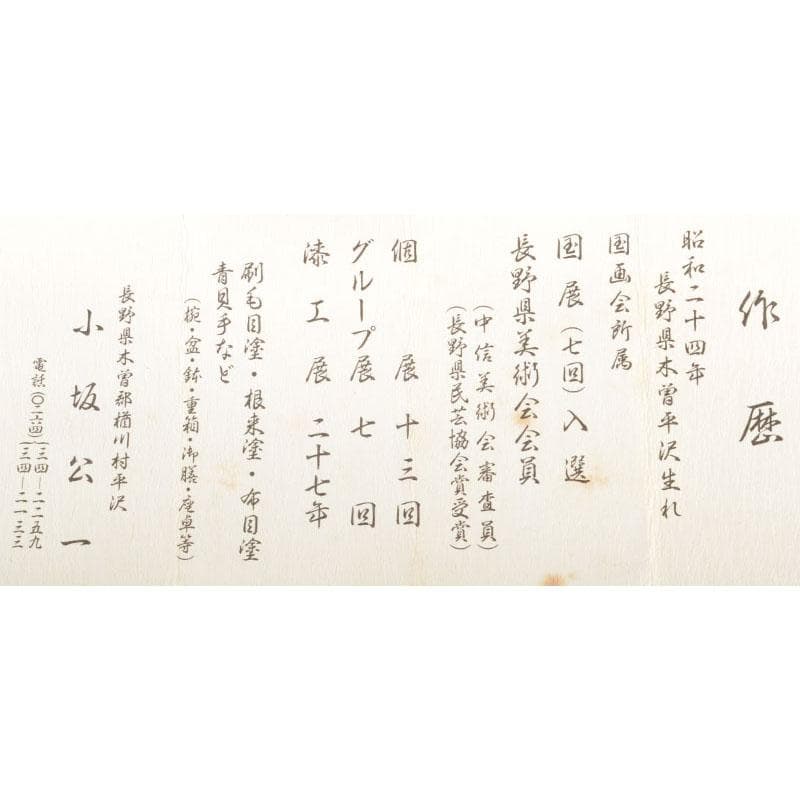 作歴
昭和二十四年
長野県木曽平沢生れ
国画会所属
国展(七回)入選
長野県美術会会員
(中信美術会審査員)
(長野県民芸協会賞受賞)
個展十三回
グループ展七回
漆工展二十七年
刷毛目塗・根来塗・布目塗
青貝手など
(椀・盆・鉢・重箱・御膳・座卓等)
長野県木曽郡楢川村平沢
小坂公一
電話(〇二六四)(三四―二二五九
(三四―二一三三